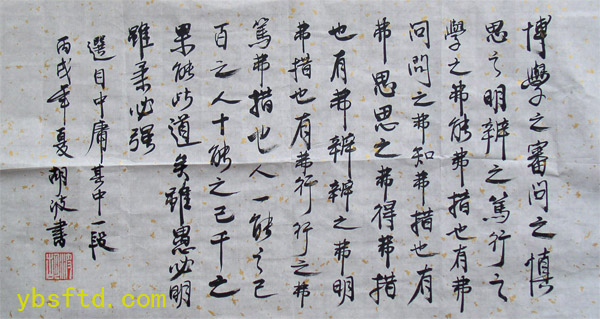 博學之審問之慎
思之明辨之篤行之
學之弗能弗措也有弗
問問之弗知弗措也有
弗思思之弗得弗措
也有弗辨辨之弗明
弗措也有弗行行之弗
篤弗措也人一能之己
百之人十能之己千之
果能此道矣雖愚必明
雖柔必强
選自中庸其中一段
丙戌年夏胡波書
ybsftd.com